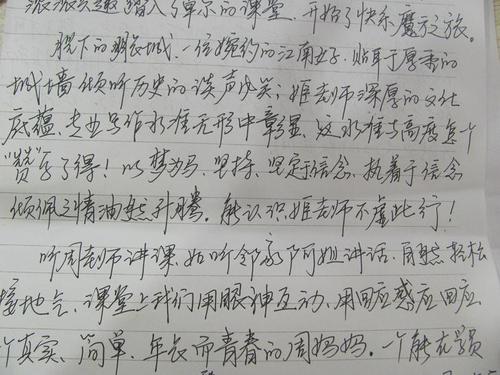 兴趣踏入了单尔的课堂，开始了快乐魔方之旅。
脱下的明长城，一位婉约的江南女子，贴耳于厚重的
城墙倾听历史的谈声和笑；姬老师深厚的文化
底蕴、专业写作水准无形中彰显，这水准与高度怎个
“赞”字了得！以梦为马、坚持、坚定于信念、执着于信念
倾佩之情油然升腾。能认识姬老师不虚此行！
听周老师讲课，如听邻家阿姐讲话，自然轻松
接地气，课堂上我们用眼神互动，用回应感应回应
个真实、简单、年长而青春的周妈妈。一个能在学员